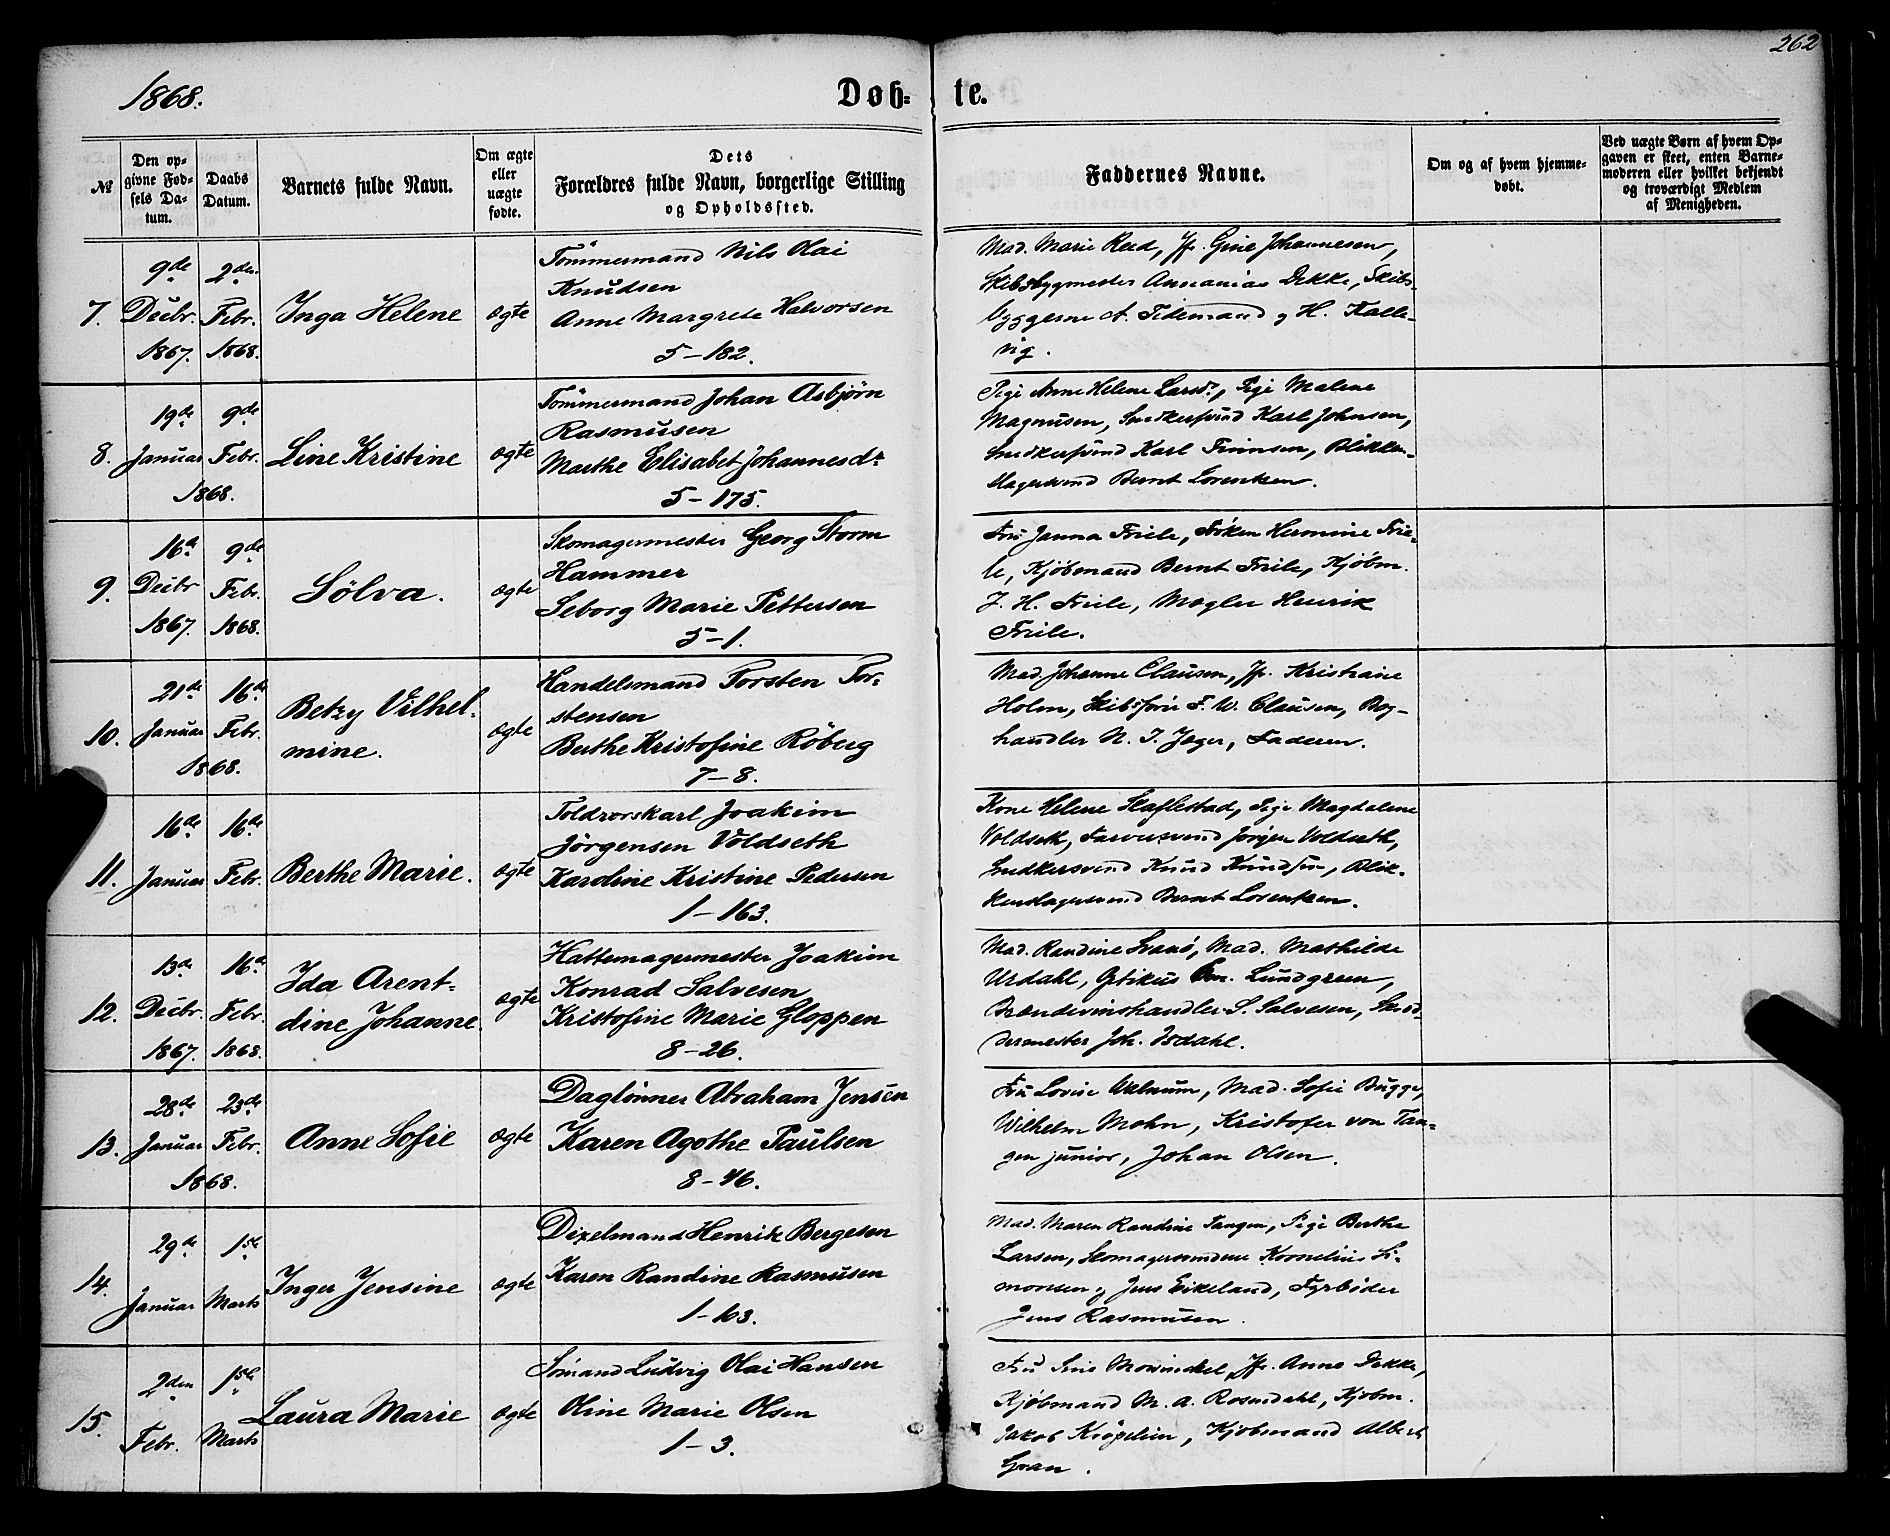 262
1868.
Døb-te.
№
Den op-
givne Fød-
sels Da-
tum.
Daabs
Datum.
Barnets fulde Navn.
Om ægte
eller
uægte
fødte.
Dets
Forældres fulde Navn, borgerlige Stilling
og Opholdssted.
Faddernes Navne.
Om og af hvem hjemme-
døbt.
Ved uægte Børn af hvem Op-
gaven er skeet, enten Barne-
moderen eller hvilket bekjendt
og troværdigt Medlem
af Menigheden.
7.
9de
Decbr.
1867.
2den
Febr.
1868.
Inga Helene
ægte
Tømmermand Nils Olai
Knudsen
Anne Margrete Halvorsen
5-182.
Mad. Marie Reed, Jfr. Gine Johannesen,
Skibsbygmester Annanias Dekke, Skibs-
byggerne A. Tidemand og H. Kalle-
vig.
8.
19de
Januar
9de
Febr.
1868.
Line Kristine
ægte
Tømmermand Johan Asbjørn
Rasmusen
Marthe Elisabet Johannesdr
5-175.
Pige Anne Helene Larsdr, Pige Malene
Magnusen, Snedkersvend Karl Johnsen,
Snedkersvend Karl Timmsen, Blikken-
slagersvend Bernt Lorentzen.
9.
16de
Decbr
1867.
9de
Febr.
1868.
Sölva.
ægte
Skomagermester Georg Storm
Hammer
Seborg Marie Pettersen
5-1.
Fru Janna Friele, Frøken Hermine Frie-
le, Kjøbmand Bernt Friele, Kjøbm.
J. H. Friele, Mægler Henrik
Friele.
10.
21de
Januar
16de
Febr.
1868.
Betzy Vilhel-
mine.
ægte
Handelsmand Torsten Tor-
stensen
Berthe Kristofine Röberg
7-8.
Mad. Johanne Clausen, Jfr. Kristiane
Holm, Skibsfører F. W. Clausen, Bog-
handler N. J. Jæger, Faderen.
11.
16de
Januar
16de
Febr.
Berthe Marie.
ægte
Toldrorskarl Joakim
Jørgensen Voldseth
Karoline Kristine Pedersen
1-163.
Kone Helene Haflestad, Pige Magdalene
Voldseth, Farversvend Jørgen Voldseth,
Snedkersvend Knud Knudsen, Blik-
kenslagersvend Bernt Lorentzen.
12.
13de
Decbr.
1867.
16de
Febr.
1868.
Ida Arent-
dine Johanne
ægte
Hattemagermester Joakim
Konrad Salvesen
Kristofine Marie Gloppen
8-26.
Mad. Randine Svanö, Mad. Mathilde
Urdahl, Optikus Em. Lundgreen,
Brændevinshandler S. Salvesen,
dermester Joh. Isdahl.
13.
28de
Januar
23de
Febr.
1868.
Anne Sofie
ægte
Daglönner Abraham Jensen
Karen Agothe Paulsen
8-46.
Fru Lovise Walnum, Mad. Sofie Bugge,
Wilhelm Mohn, Kristofer von Tan-
gen junior, Johan Olsen.
14.
29de
Januar
1ste
Marts
Inger Jensine
ægte
Dixelmand Henrik Bergesen
Karen Randine Rasmusen
1-63.
Mad. Maren Randine Tangen, Pige Berthe
Larsen, Skomagersvendene Kornelius Si-
monsen og Jens Eikeland, Fyrbøder
Jens Rasmusen.
15.
2den
Febr.
1ste
Marts
Laura Marie
ægte
Sömand Ludvig Olai Hansen
Oline Marie Olsen
1-3.
Fru Mowinckel, Jfr. Anna Dekke,
Kjøbmand M. A. Rosendahl, Kjøbm.
Jakob Krøpelien, Kjøbmand Albert
Gran.